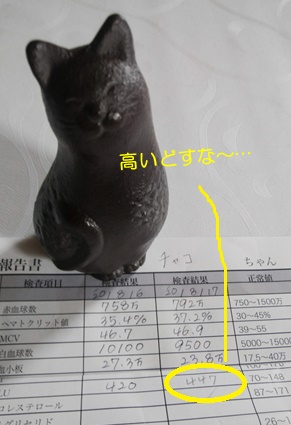 高いどすな～…
報告書 チャコ ちゃん
検査項目 検査結果 検査結果 正常値
501.8.16 501.8.17
赤血球数 758万 792万 750~1500万
ヘマトクリット値 35.4% 37.2% 30~45%
MCV 46.7 46.9 39~55
白血球数 10100 9500 5000~15000
血小板 27.3万 23.8万 17.5~40万
LU 420 447 70~148
コレステロール 87~171
グリセリド